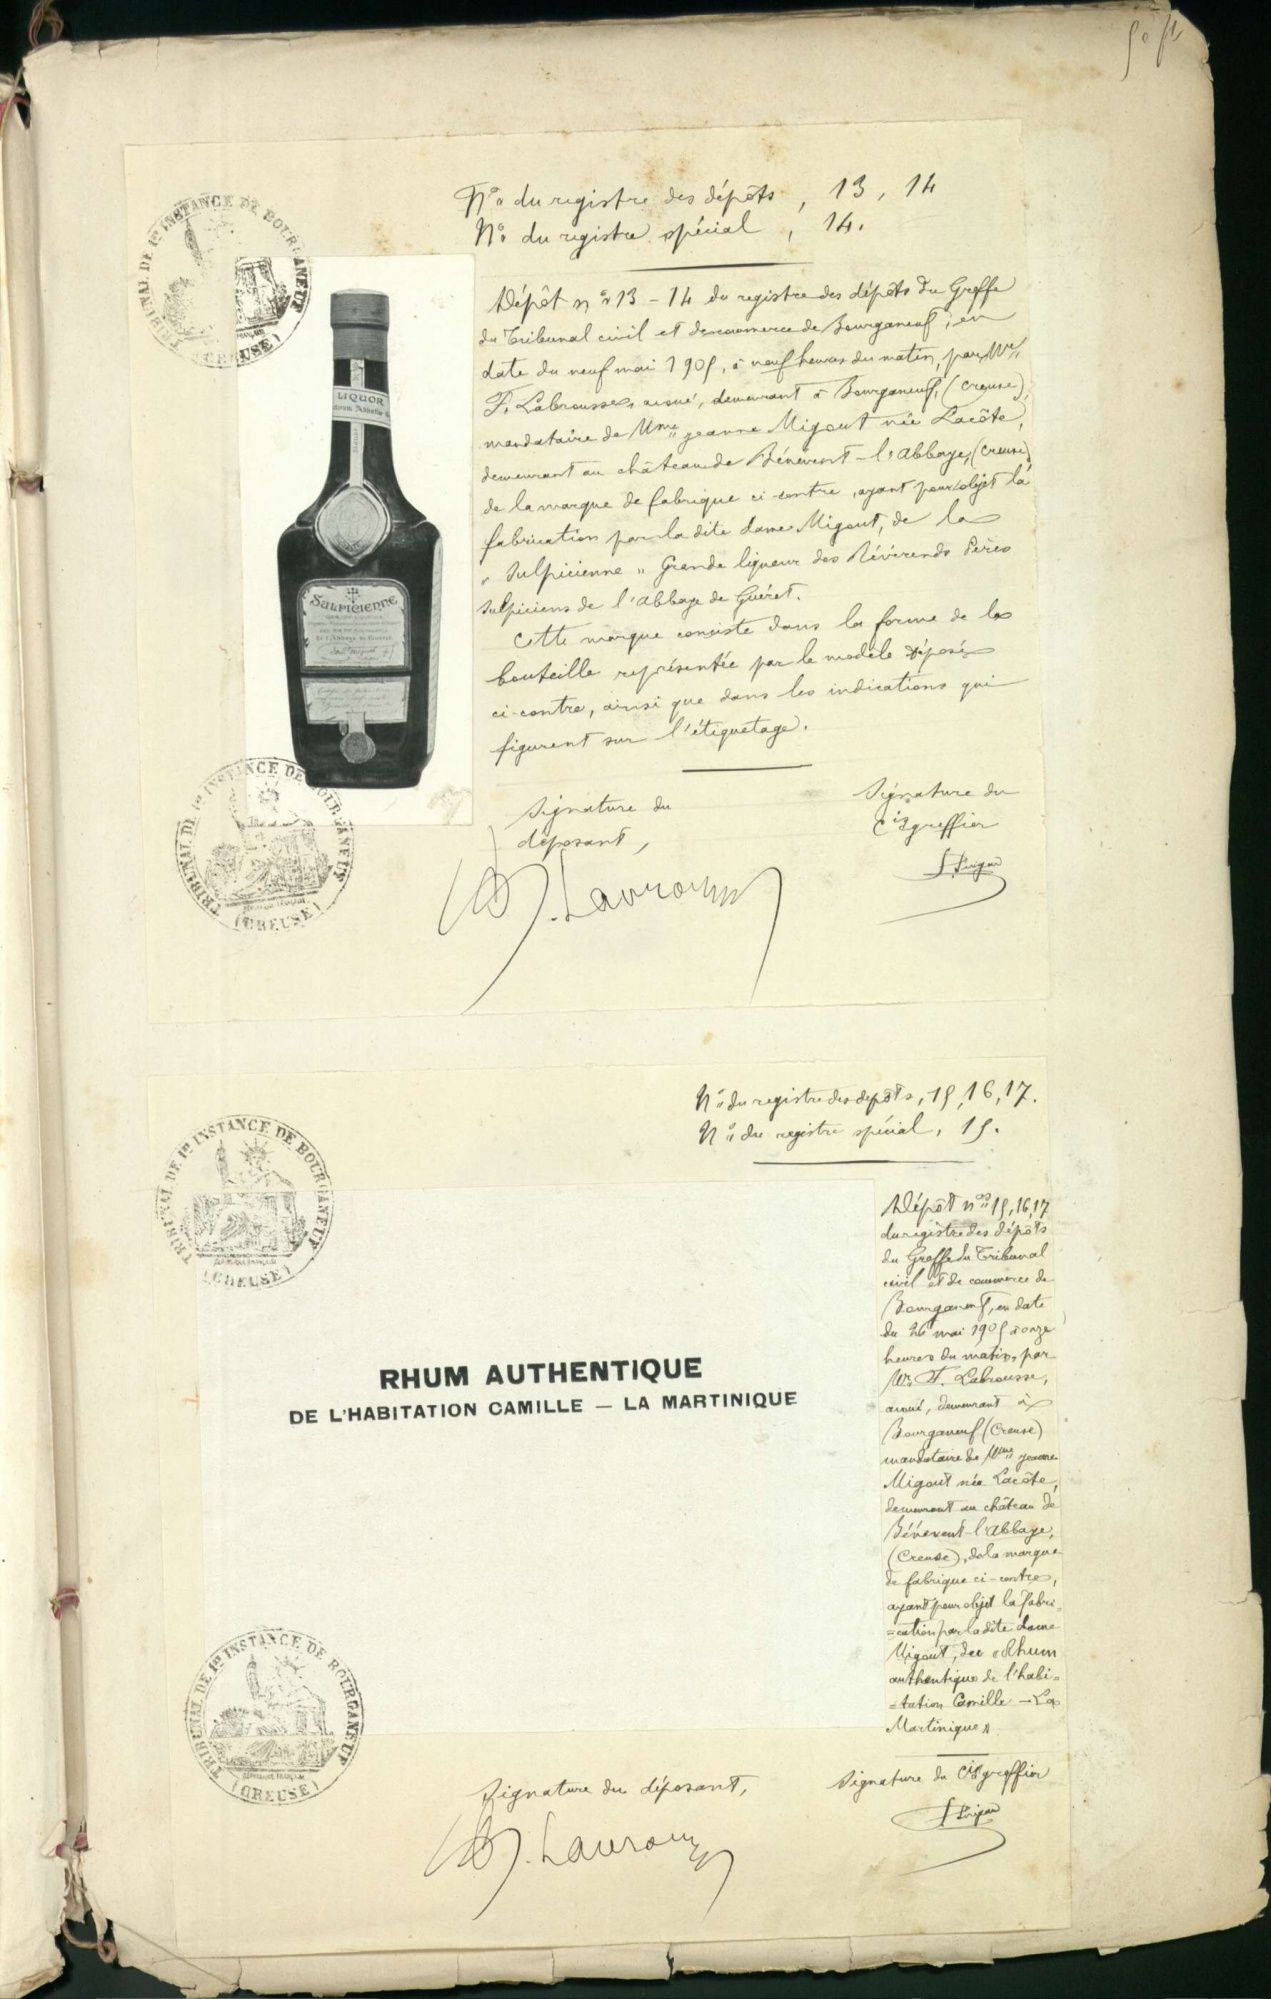 5e ft
Nos du registre des dépôts, 13, 14
No du registre spécial, 14.
TRIBUNAL DE 1re INSTANCE DE BOURGANEUF
(CREUSE)
LIQUOR
SULPICIENNE
de l'Abbaye de Guéret
Dépôt nos 13 - 14 du registre des dépôts du Greffe
du Tribunal civil et de commerce de Bourganeuf, en
date du neuf mai 1905, à neuf heures du matin, par Me
F. Labrousse, avoué, demeurant à Bourganeuf, (Creuse),
mandataire de Mme Jeanne Migout née Lacôte,
demeurant au château de Bénévent-l'Abbaye, (Creuse),
de la marque de fabrique ci-contre, ayant pour objet la
fabrication par la dite dame Migout, de la
" Sulpicienne " Grande liqueur des Révérends Pères
Sulpiciens de l'Abbaye de Guéret.
Cette marque consiste dans la forme de la
bouteille représentée par le modèle déposé
ci-contre, ainsi que dans les indications qui
figurent sur l'étiquetage.
Signature du
déposant,
Signature du
Cis greffier
TRIBUNAL DE 1re INSTANCE DE BOURGANEUF
(CREUSE)
Nos du registre des dépôts, 15, 16, 17.
No du registre spécial, 15.
TRIBUNAL DE 1re INSTANCE DE BOURGANEUF
(CREUSE)
RHUM AUTHENTIQUE
DE L'HABITATION CAMILLE — LA MARTINIQUE
Dépôt nos 15, 16, 17
du registre des dépôts
du Greffe du Tribunal
civil et de commerce de
Bourganeuf, en date
du 26 mai 1905 à onze
heures du matin, par
Me F. Labrousse,
avoué, demeurant à
Bourganeuf (Creuse)
mandataire de Mme Jeanne
Migout née Lacôte,
demeurant au château de
Bénévent-l'Abbaye,
(Creuse), de la marque
de fabrique ci-contre,
ayant pour objet la fabri-
=cation par la dite dame
Migout, du " Rhum
authentique de l'habi-
=tation Camille — La
Martinique "
TRIBUNAL DE 1re INSTANCE DE BOURGANEUF
RÉPUBLIQUE FRANÇAISE
(CREUSE)
Signature du déposant,
Signature du Cis greffier